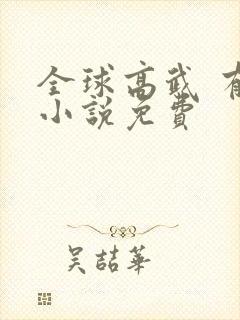 全球高武 有
小說免費
吳喆華